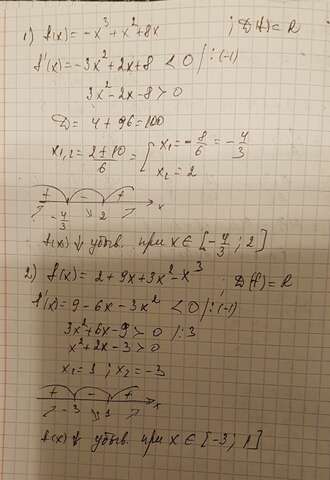 1) f(x) = -x³ + x² + 8x ; D(f) = R
f'(x) = -3x² + 2x + 8 < 0 /: (-1)
3x² - 2x - 8 > 0
D = 4 + 96 = 100
x₁,₂ = (2 ± 10)/6 = [ x₁ = -8/6 = -4/3
x₂ = 2
+ - +
-4/3 2 x
f(x) ↓ убыв. при x ∈ [-4/3 ; 2]
2) f(x) = 2 + 9x + 3x² - x³ ; D(f) = R
f'(x) = 9 - 6x - 3x² < 0 /: (-1)
3x² + 6x - 9 > 0 /: 3
x² + 2x - 3 > 0
x₁ = 1 ; x₂ = -3
+ - +
-3 1 x
f(x) ↓ убыв. при x ∈ [-3 ; 1]